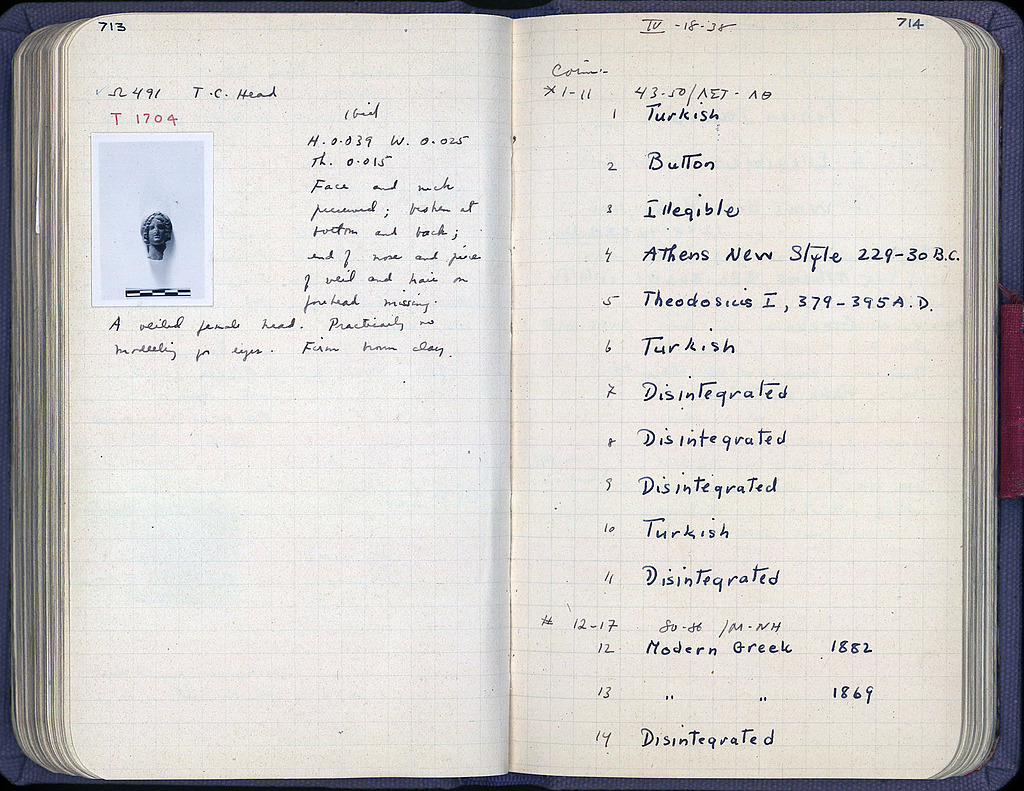 713
Ω 491 T.C. Head
T 1704
ibid
H. 0.039 W. 0.025
Th. 0.015
Face and neck
preserved; broken at
bottom and back;
end of nose and piece
of veil and hair on
forehead missing.
A veiled female head. Practically no
modelling for eyes. Firm brown clay.
714
IV -18-38
Coins-
1-11 43-50/ΛΣΤ-ΛΘ
1 Turkish
2 Button
3 Illegible
4 Athens New Style 229-30 B.C.
5 Theodosius I, 379-395 A.D.
6 Turkish
7 Disintegrated
8 Disintegrated
9 Disintegrated
10 Turkish
11 Disintegrated
# 12-17 80-86 /M-NH
12 Modern Greek 1882
13 " " 1869
14 Disintegrated